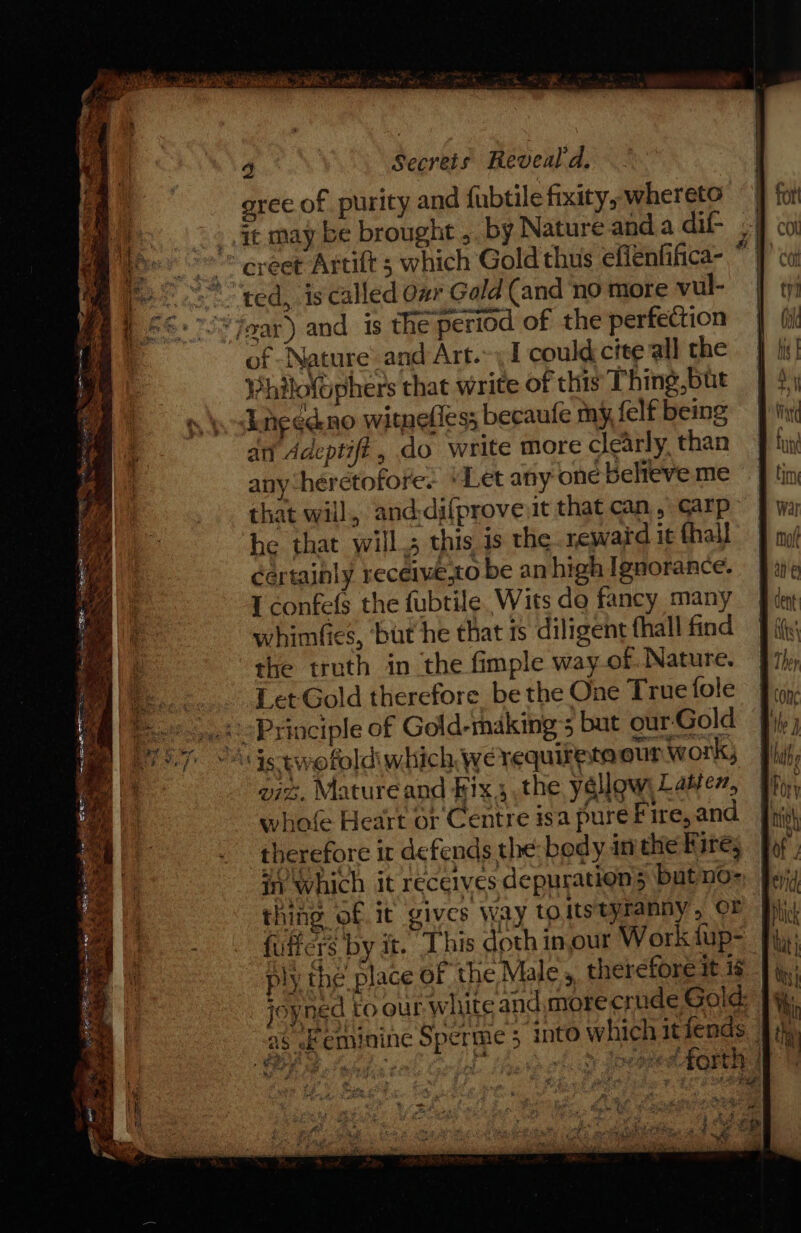 Secrets Reveal'd.
gree of purity and ſubtile fixity, whereto
it may be brought, by Nature and a diſ-
creet Artiſt; which Gold thus eſſenſifica-
ted, is called Our Gold (and no more vul-
gar) and is the period of the perfection
of Nature and Art. I could cite all the
Philoſophers that write of this Thing, but
I need no witneſſes; becauſe my ſelf being
an Adeptiſt, do write more clearly, than
any heretofore. Let any one believe me
that will, and diſprove it that can, carp
he that will; this is the reward it ſhall
certainly receive, to be an high Ignorance.
I confeſs the ſubtile Wits do fancy many
whimſies, but he that is diligent ſhall find
the truth in the ſimple way of Nature.
Let Gold therefore be the One True ſole
Principle of Gold-making; but our Gold
is twofold which we require to our work;
viz. Mature and Fix; the yellow Latten,
whoſe Heart or Centre is a pure Fire, and
therefore it defends the body in the Fire;
in which it receives depuration; but no-
thing of it gives way to its tyranny, or
ſuffers by it. This doth in our Work ſup-
ply the place of the Male, therefore it is
joyned to our white and more crude Gold;
as Feminine Sperme; into which it ſends
forth